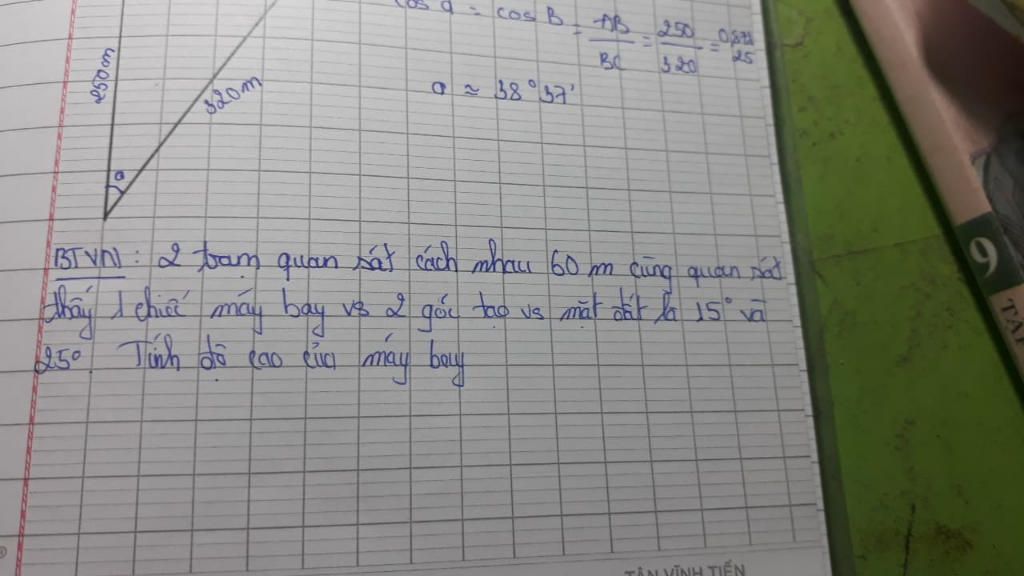 cos a = cos B = AB/BC = 250/320 = 0,78125
a ≈ 38°37'
250m
320m
a
BTVN: 2 trạm quan sát cách nhau 60 m cùng quan sát
thấy 1 chiếc máy bay vs 2 góc tạo vs mặt đất là 15° và
25°. Tính độ cao của máy bay
9
TẬP
TÂN VĨNH TIẾN